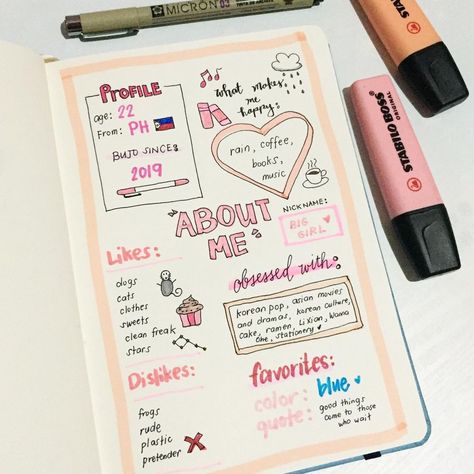 MICRON 03
STABILO BOSS
ORIGINAL
STABILO BOSS
PROFILE
age: 22
From: PH
BUJO SINCE:
2019
What makes
me
happy:
rain, coffee,
books,
music
ABOUT
ME
NICKNAME:
BIG
GIRL
Likes:
dogs
cats
clothes
sweets
clean freak
stars
obsessed with:
korean pop, asian movies
and dramas, korean culture,
cake, ramen, Li Xian, Wanna
One, stationery
Dislikes:
frogs
rude
plastic
pretender
favorites:
color: blue
quote: good things
come to those
who wait